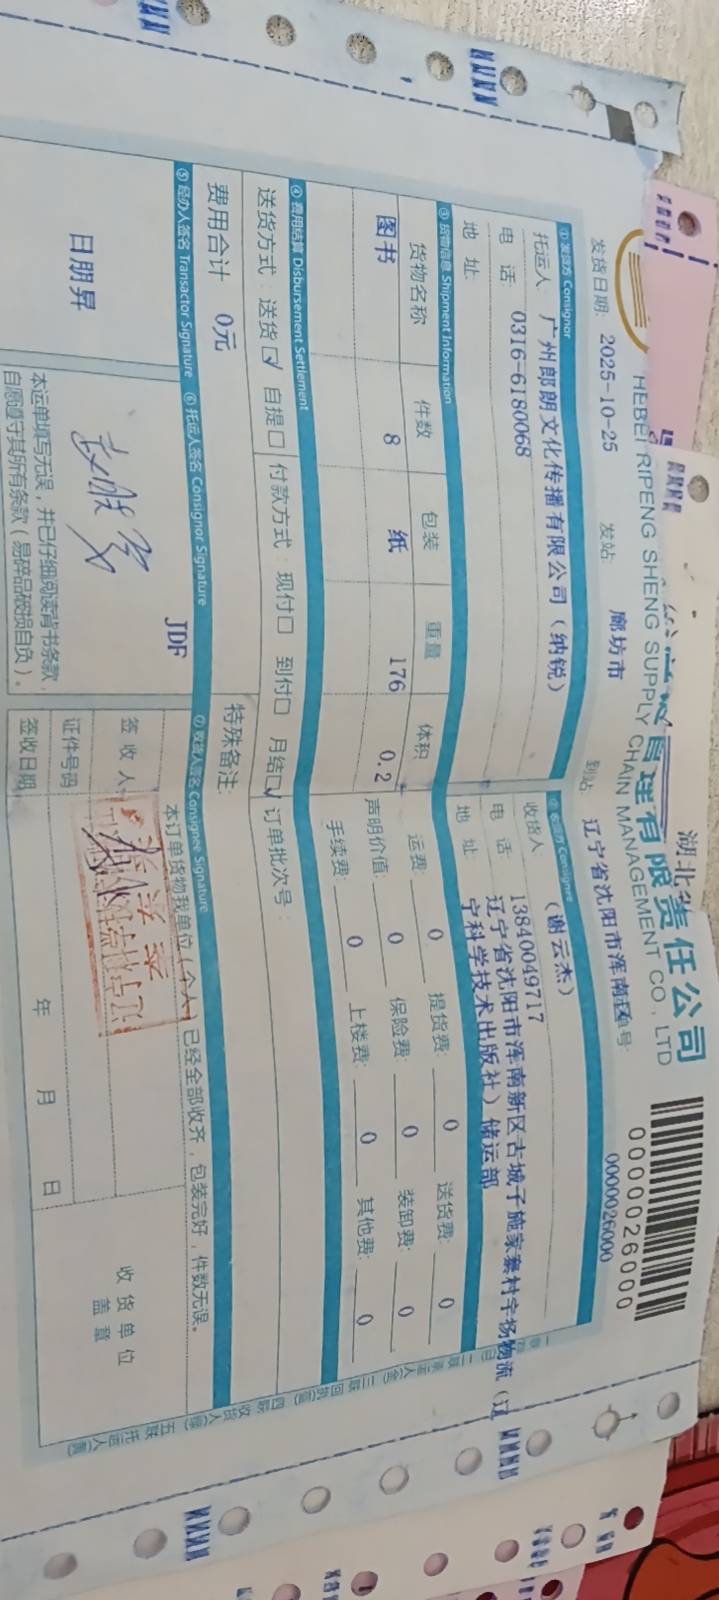 湖北
管理有限责任公司
HEBEI RIPENG SHENG SUPPLY CHAIN MANAGEMENT CO., LTD
0000026000
发货日期: 2025-10-25 发站: 廊坊市 到站: 辽宁省沈阳市浑南区 单号: 0000026000
① 发货方 Consignor
托运人 广州郎朗文化传播有限公司（纳锐）
电 话: 0316-6180068
地 址:
② 收货方 Consignee
收货人: （谢云杰）
电 话: 13840049717
地 址: 辽宁省沈阳市浑南新区古城子施家寨村宇扬物流（辽
宁科学技术出版社）储运部
③ 货物信息 Shipment Information
货物名称 件数 包装 重量 体积
图书 8 纸 176 0.2
运费: 0 提货费: 0 送货费: 0
声明价值: 0 保险费: 0 装卸费: 0
手续费: 0 上楼费: 0 其他费: 0
④ 费用结算 Disbursement Settlement
送货方式: 送货☑ 自提□ 付款方式: 现付□ 到付□ 月结☑ 订单批次号:
费用合计 0元 特殊备注:
⑤ 经办人签名 Transactor Signature ⑥ 托运人签名 Consignor Signature ⑦ 收货人签名 Consignee Signature
JDF
日朋昇
本运单填写无误，并已仔细阅读背书条款，
自愿遵守其所有条款（易碎品破损自负）。
本订单货物我单位（个人）已经全部收齐，包装完好，件数无误。
签 收 人
证件号码
签收日期 年 月 日
收货单位
盖章